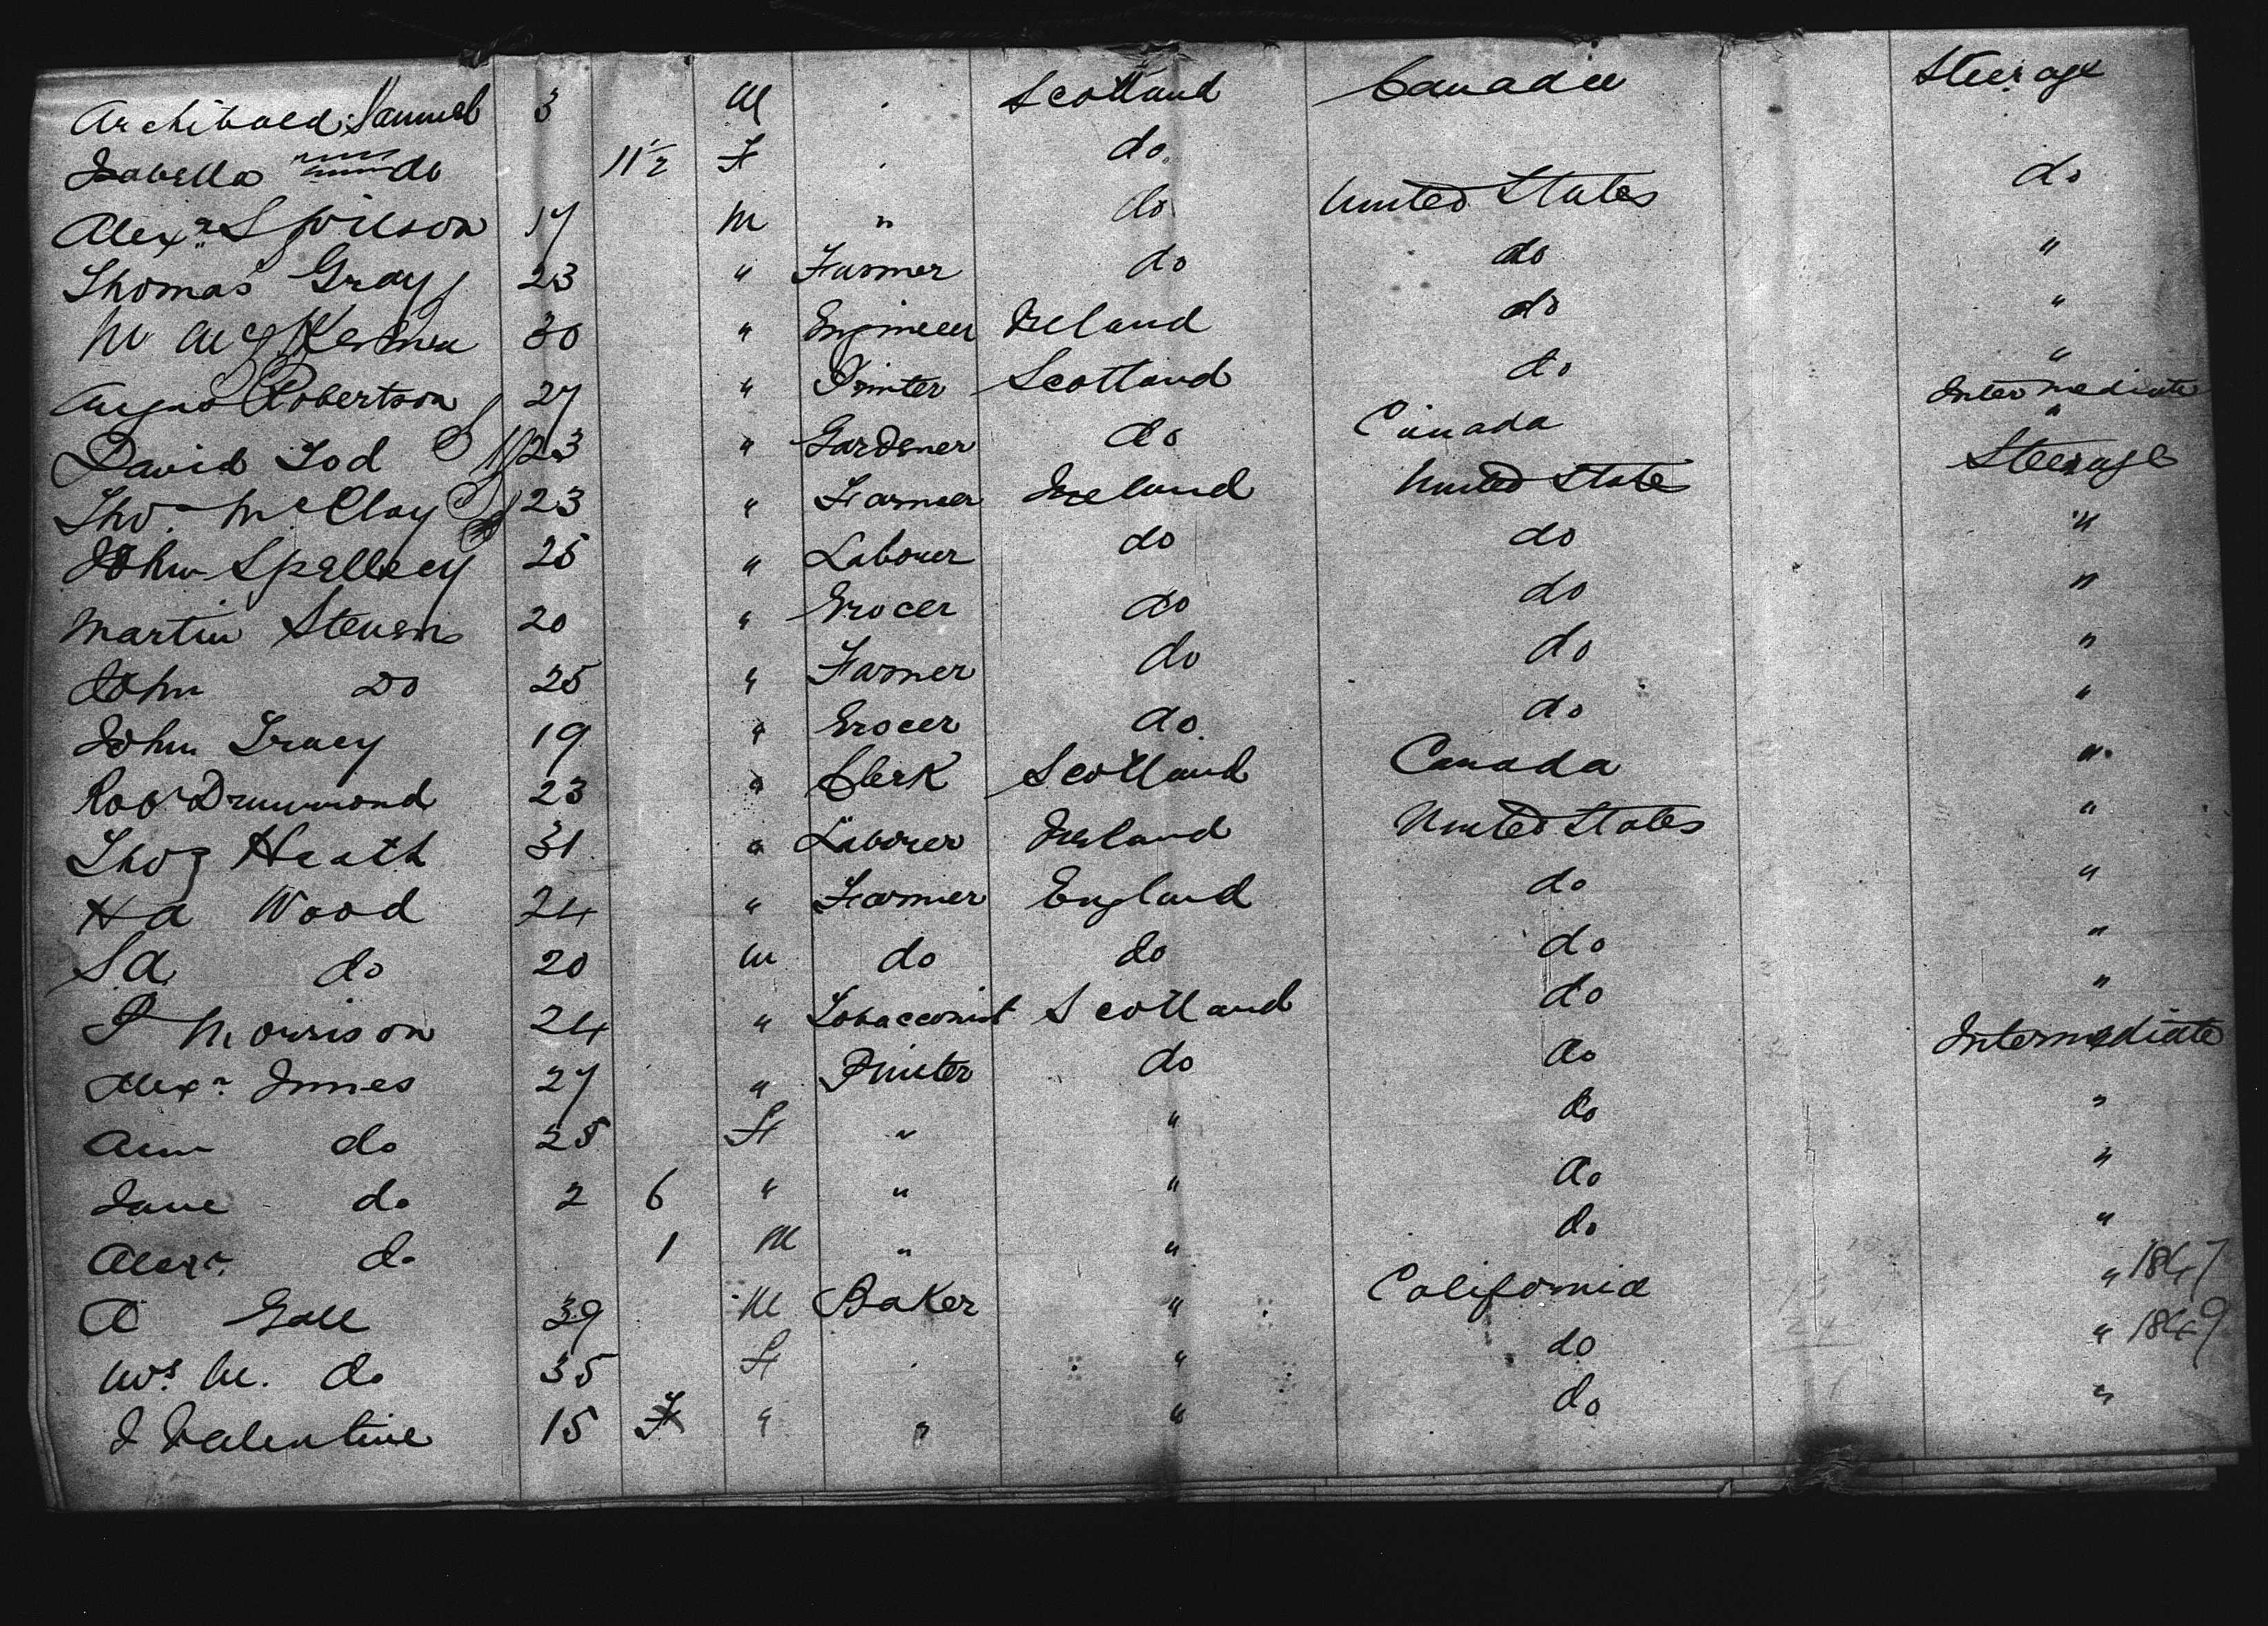 Archibald Samuel 3 M Scotland Canada Steerage
Isabella do 11½ F do
Alexr Spilson 17 M " do United States do
Thomas Gray 23 " Farmer do do "
30 " Engineer Ireland do "
Angus Robertson 27 " Printer Scotland do "
David Tod 23 " Gardener do Canada Intermediate "
Thos McClay 23 " Farmer Ireland United State Steerage
John Spellecy 25 " Labourer do do "
Martin Steven 20 " Grocer do do "
John Do 25 " Farmer do do "
John Tracy 19 " Grocer do do "
Robt Drummond 23 " Clerk Scotland Canada "
Thos Heath 31 " Laborer Ireland United States "
H A Wood 24 " Farmer England do "
S A do 20 M do do do "
P Morrison 24 " Tobacconist Scotland do "
Alexr Innes 27 " Printer do do Intermediate
Ann do 25 F " " do "
Jane do 2 6 " " " do "
Alexr do 1 M " " do "
A Gall 39 M Baker " California " 1847
Mrs M. do 35 F " do " 1849
J Valentine 15 F " " " do "